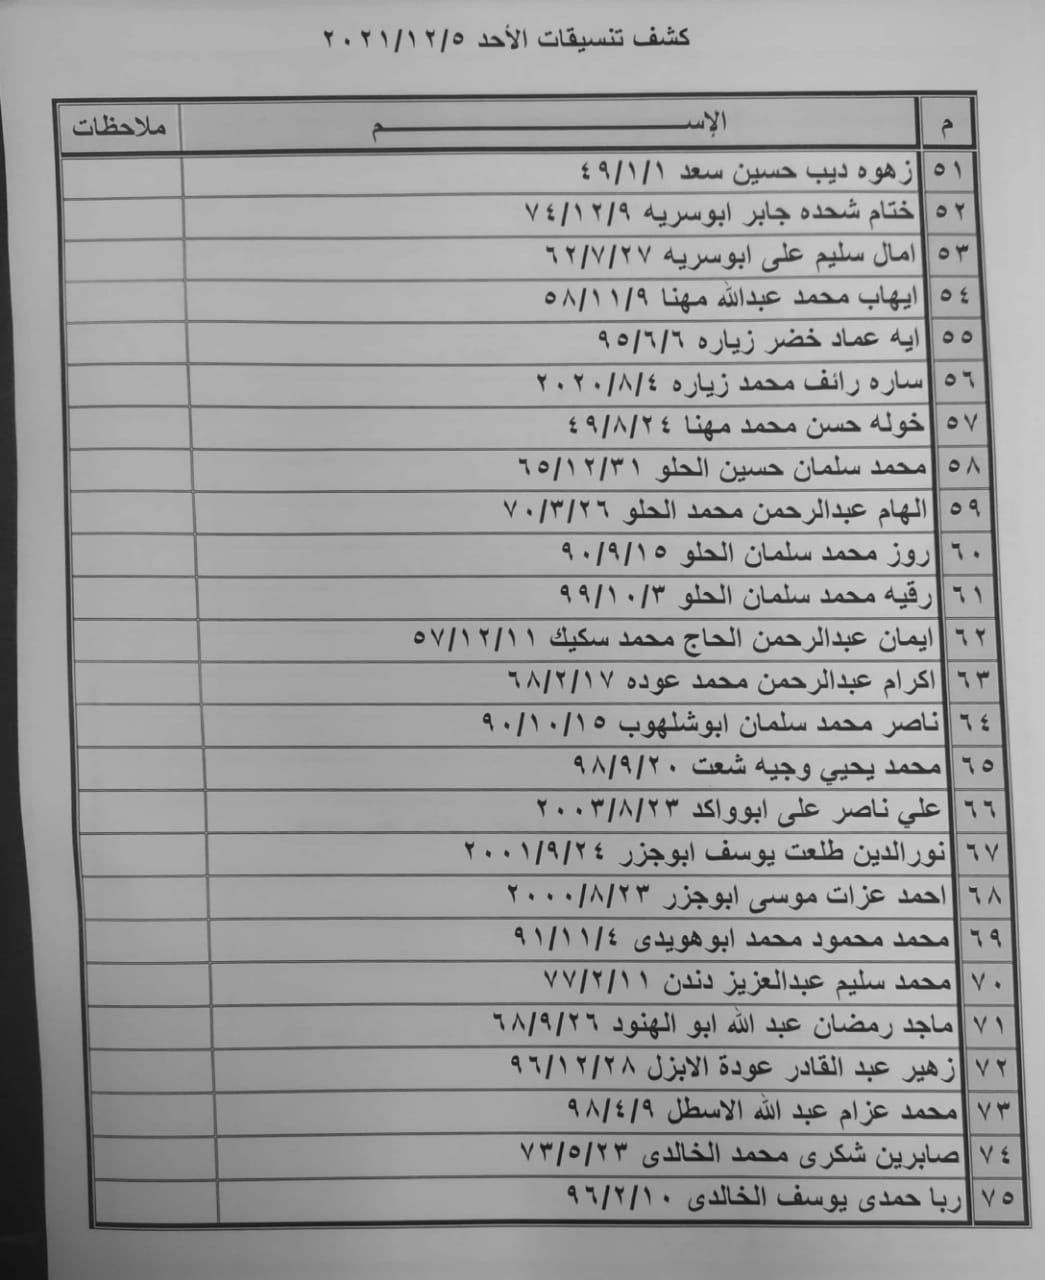 كشف تنسيقات الأحد ٢٠٢١/١٢/٥
م الإســـــــــــــم ملاحظات
٥١ زهوه ديب حسين سعد ٤٩/١/١
٥٢ ختام شحده جابر ابوسريه ٧٤/١٢/٩
٥٣ امال سليم على ابوسريه ٦٢/٧/٢٧
٥٤ ايهاب محمد عبدالله مهنا ٥٨/١١/٩
٥٥ ايه عماد خضر زياره ٩٥/٦/٦
٥٦ ساره رائف محمد زياره ٢٠٢٠/٨/٤
٥٧ خوله حسن محمد مهنا ٤٩/٨/٢٤
٥٨ محمد سلمان حسين الحلو ٦٥/١٢/٣١
٥٩ الهام عبدالرحمن محمد الحلو ٧٠/٣/٢٦
٦٠ روز محمد سلمان الحلو ٩٠/٩/١٥
٦١ رقيه محمد سلمان الحلو ٩٩/١٠/٣
٦٢ ايمان عبدالرحمن الحاج محمد سكيك ٥٧/١٢/١١
٦٣ اكرام عبدالرحمن محمد عوده ٦٨/٢/١٧
٦٤ ناصر محمد سلمان ابوشلهوب ٩٠/١٠/١٥
٦٥ محمد يحيي وجيه شعت ٩٨/٩/٢٠
٦٦ علي ناصر على ابوواكد ٢٠٠٣/٨/٢٣
٦٧ نورالدين طلعت يوسف ابوجزر ٢٠٠١/٩/٢٤
٦٨ احمد عزات موسى ابوجزر ٢٠٠٠/٨/٢٣
٦٩ محمد محمود محمد ابوهويدى ٩١/١١/٤
٧٠ محمد سليم عبدالعزيز دندن ٧٧/٢/١١
٧١ ماجد رمضان عبد الله ابو الهنود ٦٨/٩/٢٦
٧٢ زهير عبد القادر عودة الابزل ٩٦/١٢/٢٨
٧٣ محمد عزام عبد الله الاسطل ٩٨/٤/٩
٧٤ صابرين شكرى محمد الخالدى ٧٣/٥/٢٣
٧٥ ربا حمدى يوسف الخالدى ٩٦/٢/١٠